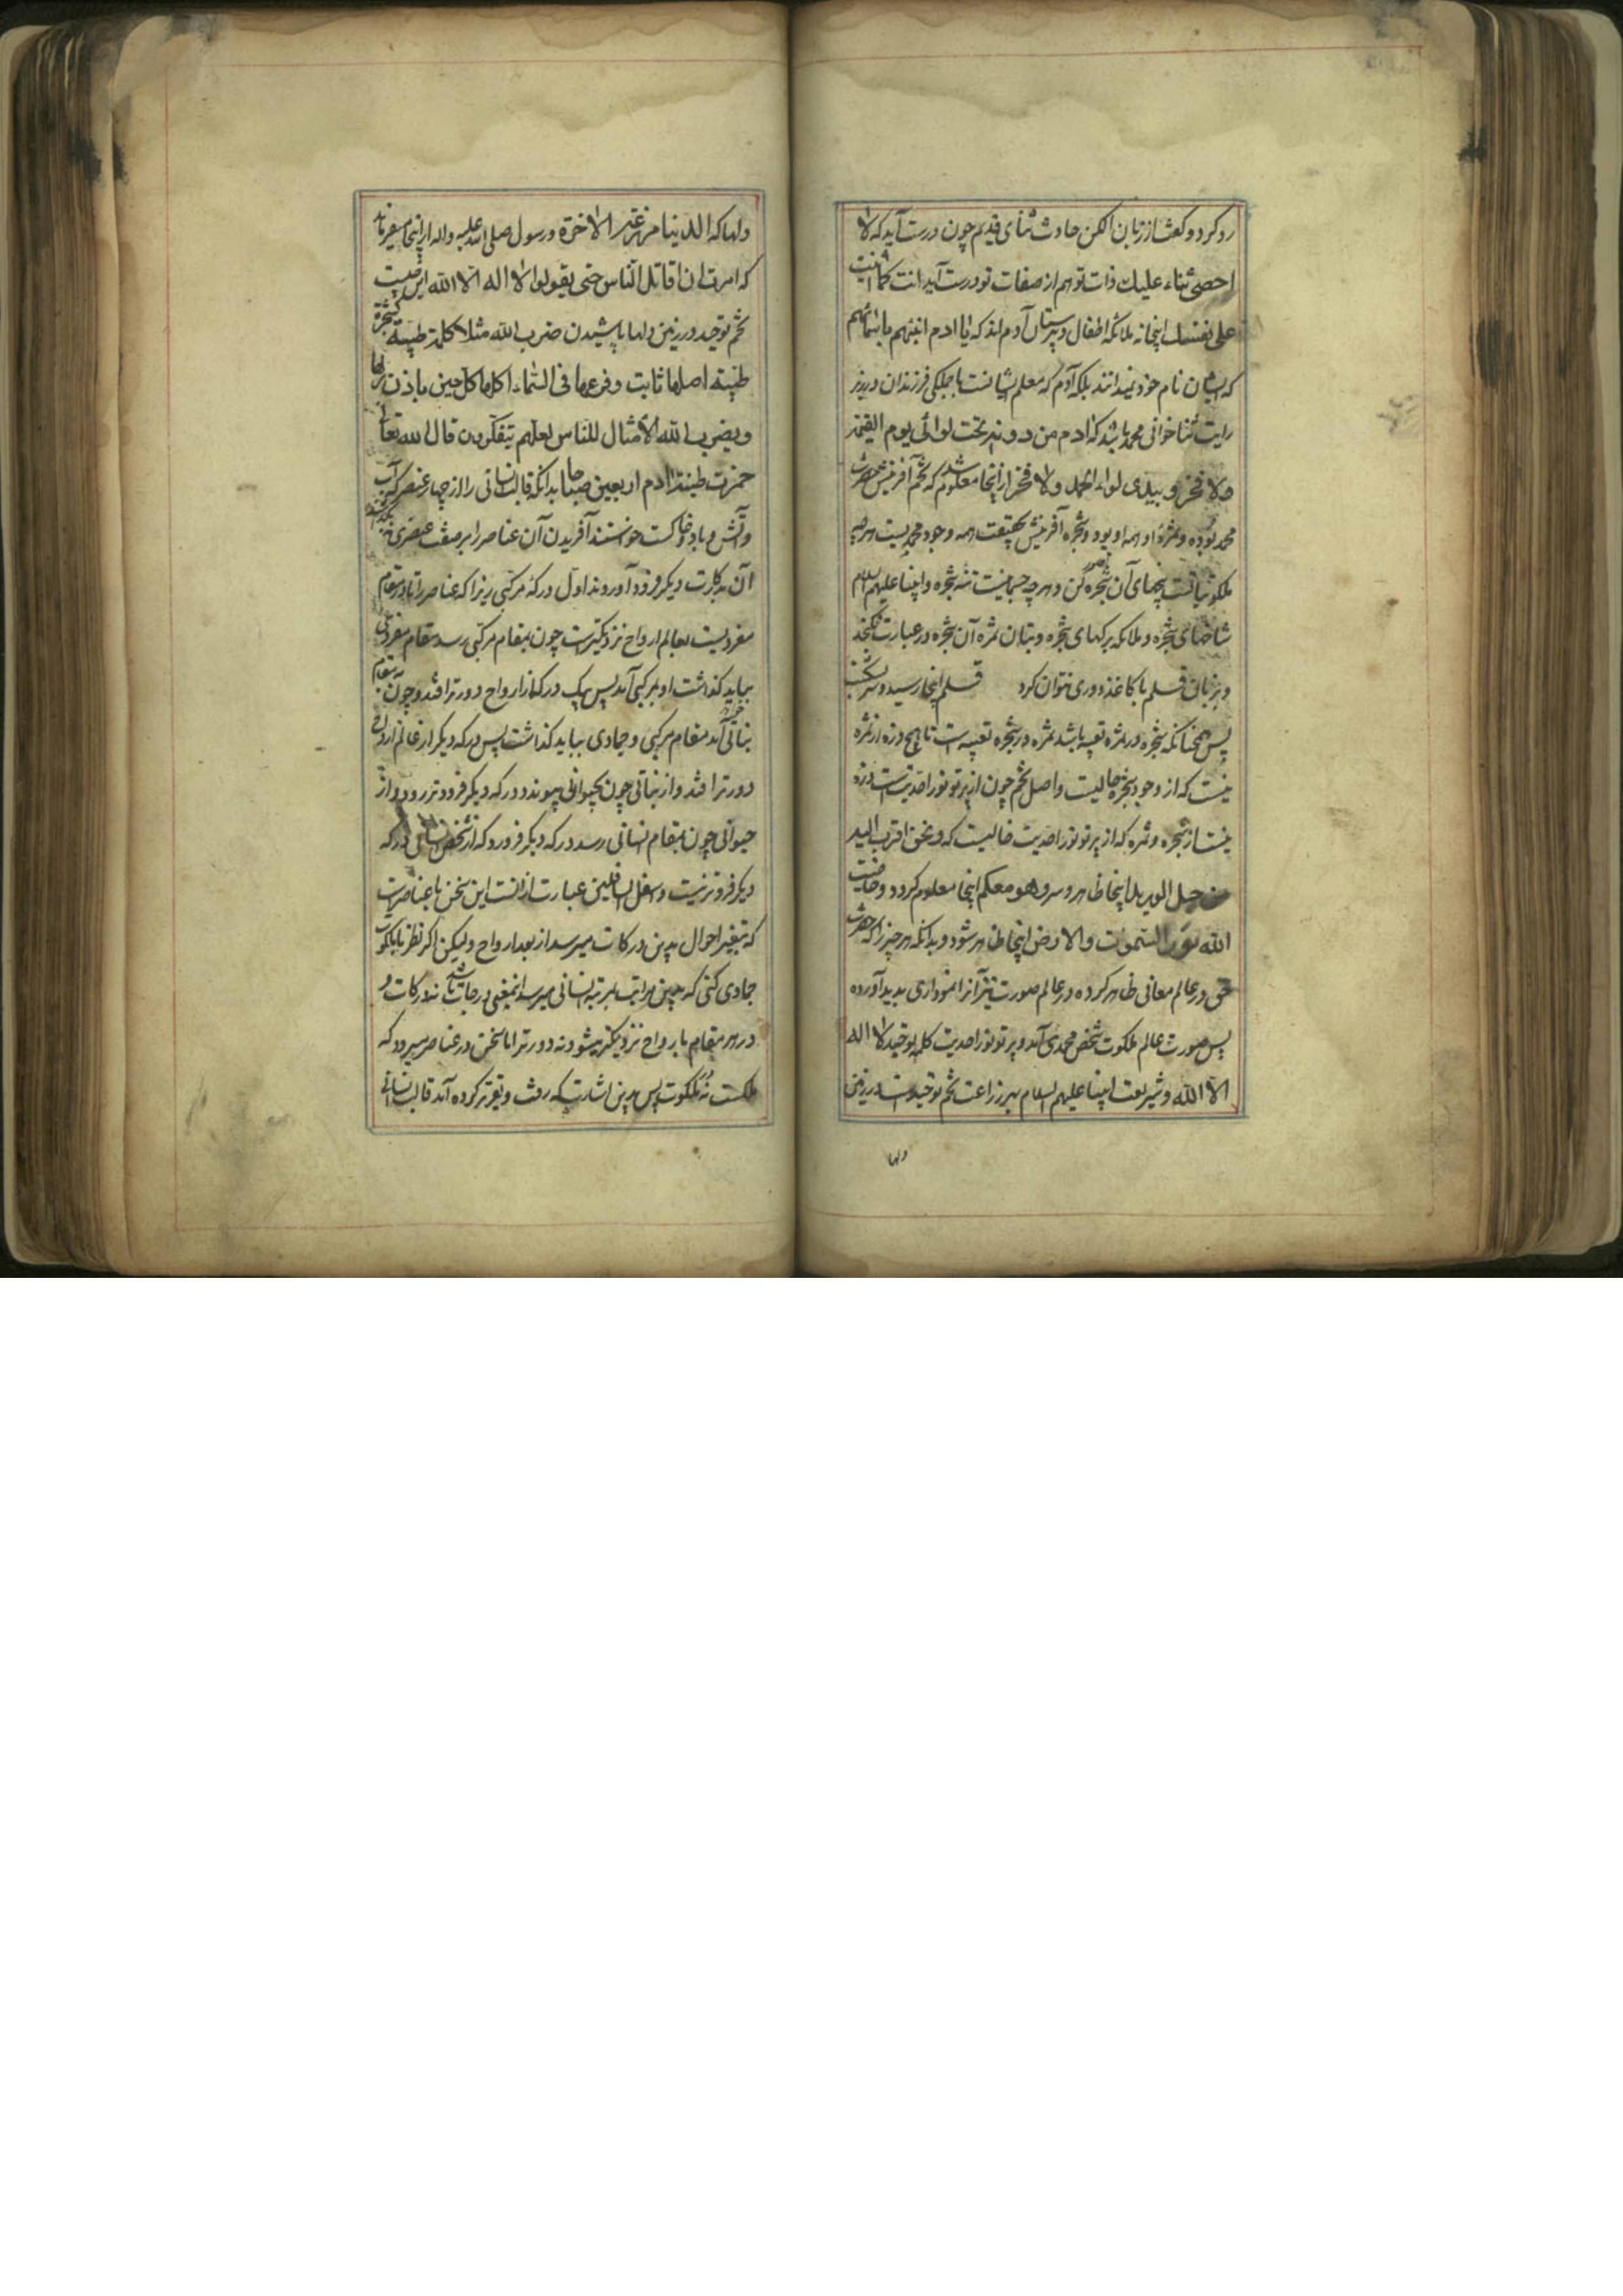 رد کرد و گفت از زبان الکن حادث ثنای قدیم چون درست آید که لا
احصی ثناء علیك ذات تو هم از صفات تو درست آید انت کما اثنیت
علی نفسك اینجا نه ملائکه اطفال دبیرستان آدم اند که یا ادم انبئهم باسمائهم
که ایشان نام خود نمیدانند بلکه آدم که معلم ایشانست با جملگی فرزندان در زیر
رایت ثنا خوانی محمد باشد که ادم من دونه تحت لوائی یوم القیمة
ولا فخر و بیدی لواء الحمد ولا فخر از اینجا معلوم شد که تخم آفرینش حضرت
محمد بوده و ثمره او همه او بود و شجره آفرینش بحقیقت همه وجود محمدیست هر چه
ملکوتیاتست بیخهای آن شجره تصور کن و هر چه جسمانیست تنه شجره و انبیا علیهم السلام
شاخهای شجره و ملائکه برگهای شجره و بیان ثمره آن شجره در عبارت نگنجد
و بزبان قلم با کاغذ دوری نتوان کرد قلم اینجا رسید و سر بشکست
پس همچنانکه شجره در ثمره تعبیه باشد ثمره در شجره تعبیه است تا هیچ ذره از ثمره
نیست که از وجود شجره خالیست و اصل تخم چون از پرتو نور احدیتست ذره
نیست از شجره و ثمره که از پرتو نور احدیت خالیست که و نحن اقرب الیه
من حبل الورید اینجا ظاهر و سر و هو معکم اینجا معلوم گردد و خاصیت
الله نور السموات والارض اینجا ظاهر شود و بدانکه هر چیز را که حضرت
حق در عالم معانی ظاهر کرده در عالم صورت نیز آنرا نموداری پدید آورده
پس صورت عالم ملکوت شخص محمدی آمد و پرتو نور احدیت کلمه توحید لا اله
الا الله و شریعت انبیا علیهم السلام بهر زراعت تخم توحیدست در زمین
دلها
دلها که الدنیا مزرعة الاخرة و رسول صلی الله علیه واله ازینجا میفرماید
که امرت ان اقاتل الناس حتی یقولوا لا اله الا الله این چیست
تخم توحید در زمین دلها پاشیدن ضرب الله مثلا کلمة طیبة کشجرة
طیبة اصلها ثابت و فرعها فی السماء اکلها کل حین باذن ربها
و یضرب الله الامثال للناس لعلهم یتفکرون قال الله تعالی
خمرت طینة ادم اربعین صباحا بدانکه قالب انسانی را از چهار عنصر که آب
و آتش و باد و خاکست خواستند آفریدن آن عناصر را بر صفت عنصری
آن بدرکات دیگر فرود آوردند اول درکه مرکبی زیرا که عناصر را تا در مقام
مفردیست بعالم ارواح نزدیکترست چون بمقام مرکبی رسد مقام مفردی
بباید گذاشت او بمرکبی آمد پس یک درکه از ارواح دورتر افتد و چون بمقام
نباتی آمد مقام مرکبی و جمادی بباید گذاشت پس درکه دیگر از عالم ارواح
دورتر افتد و از نباتی چون بحیوانی پیوندد درکه دیگر فرودتر رود و از
حیوانی چون بمقام انسانی رسد درکه دیگر فرو رود که از شخص انسانی درکه
دیگر فروتر نیست و اسفل السافلین عبارت از آنست این سخن با عناصرست
که بتغیر احوال بدین درکات میرسد از بعد ارواح و لیکن اگر نظر با ملکوت
جمادی کنی که بدین مراتب بمرتبه انسانی میرسد این معنی درجات باشد نه درکات و
در هر مقام بارواح نزدیکتر میشود نه دورتر اما سخن در عناصر میرود که
ملکست نه در ملکوت پس بدین اشارت که رفت و تقریر کرده آمد قالب انسانی